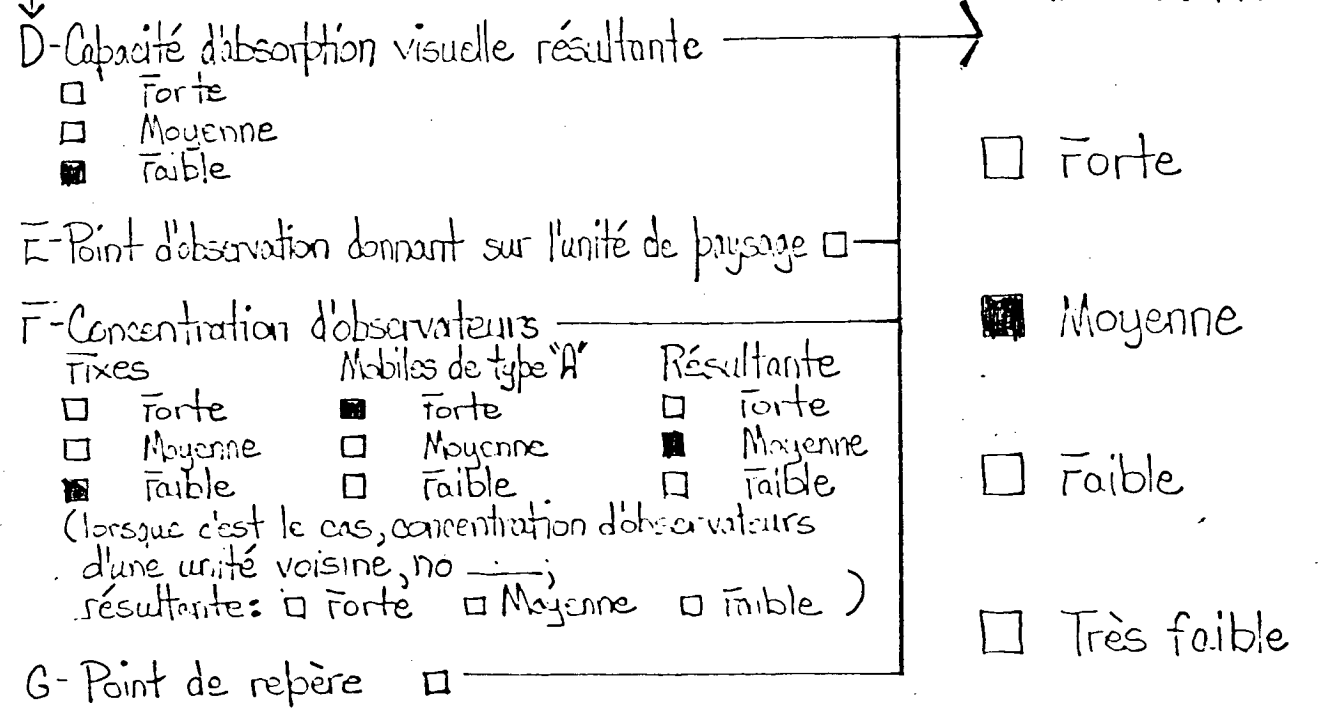 D-Capacité d'absorption visuelle résultante
☐ Forte
☐ Moyenne
■ Faible
E-Point d'observation donnant sur l'unité de paysage ☐
F-Concentration d'observateurs
Fixes Mobiles de type "A" Résultante
☐ Forte ■ Forte ☐ Forte
☐ Moyenne ☐ Moyenne ■ Moyenne
■ Faible ☐ Faible ☐ Faible
(lorsque c'est le cas, concentration d'observateurs
d'une unité voisine, no ___;
résultante: ☐ Forte ☐ Moyenne ☐ Faible )
G- Point de repère ☐
☐ Forte
■ Moyenne
☐ Faible
☐ Très faible